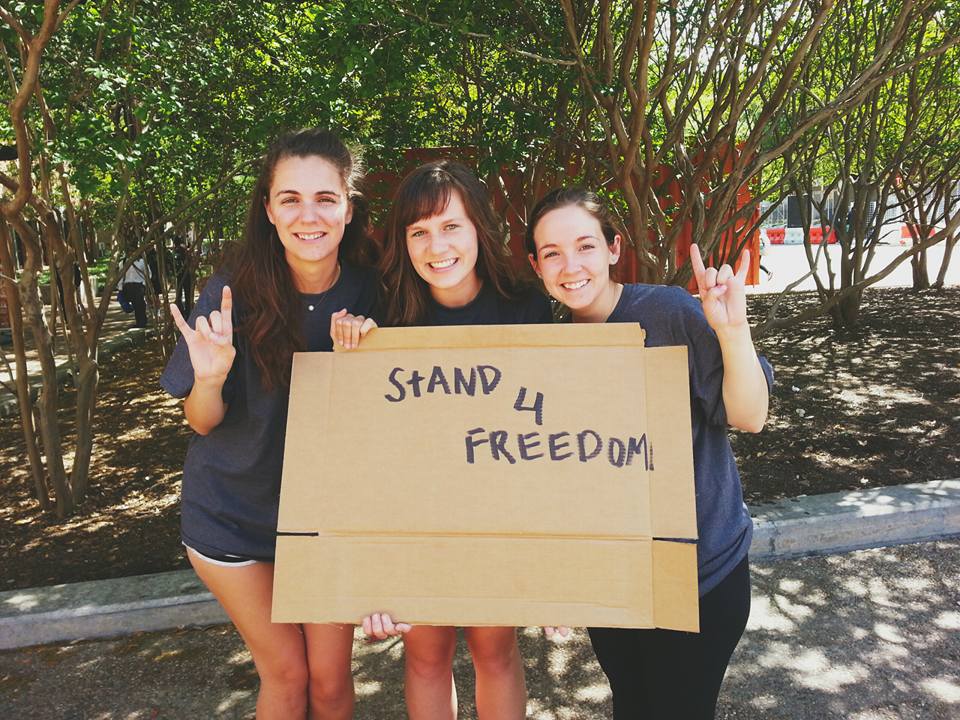 StAND
4
FREEDOM!